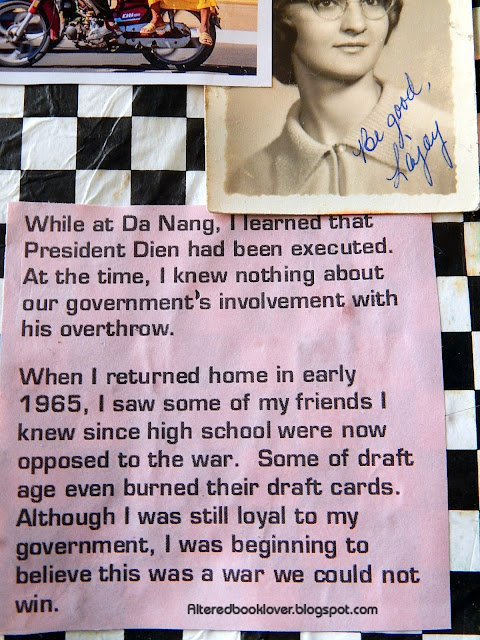 Be good,
Lajay
While at Da Nang, I learned that
President Dien had been executed.
At the time, I knew nothing about
our government's involvement with
his overthrow.
When I returned home in early
1965, I saw some of my friends I
knew since high school were now
opposed to the war. Some of draft
age even burned their draft cards.
Although I was still loyal to my
government, I was beginning to
believe this was a war we could not
win.
Alteredbooklover.blogspot.com